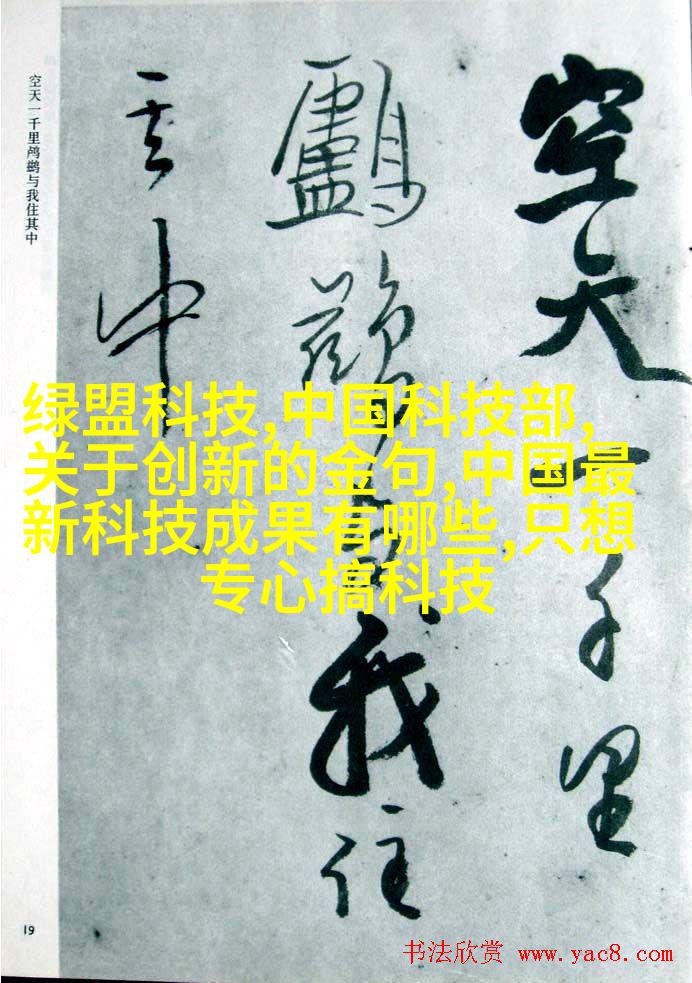 空天一千里
鸕我住
其中
空天一千里鸬鹚与我住其中
绿盟科技,中国科技部,
关于创新的金句,中国最
新科技成果有哪些,只想
专心搞科技
19
书法欣赏 www.yac8.com